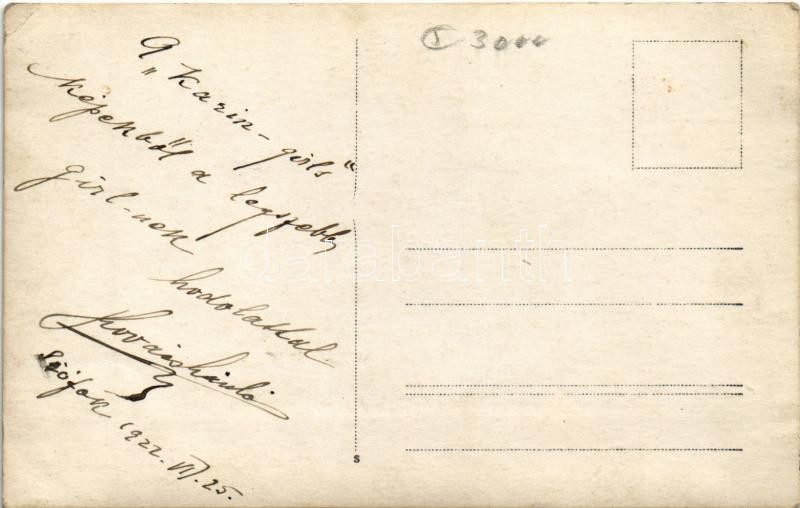 A „Kazin-girls"
képekből a legszebb
girl-nek
hodolattal
Kovács Károly
Siófok 1922. VII. 25.
I 3000
darabanth
S